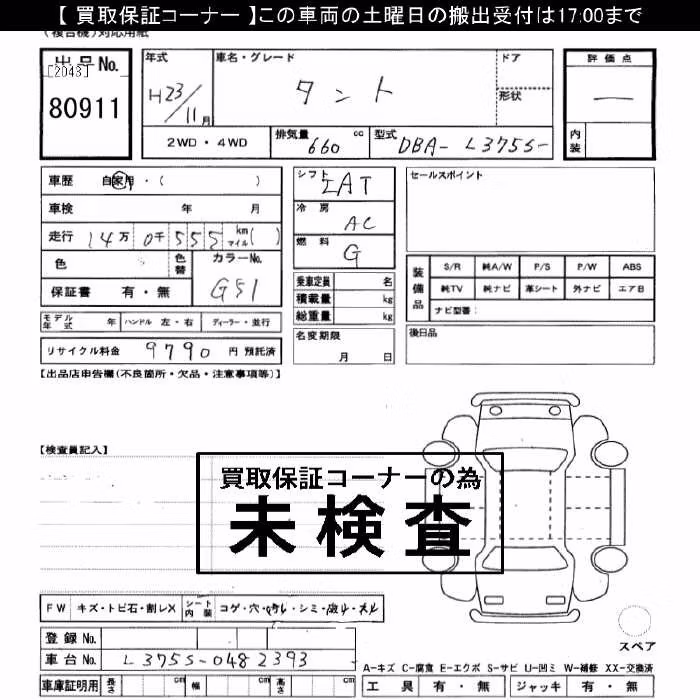 【 買取保証コーナー 】この車両の土曜日の搬出受付は17:00まで
(複合機)対応用紙
出品No.
[2043]
80911
年式
H23/11月
車名・グレード
タント
ドア
形状
評価点
—
内装
2WD・4WD
排気量 660 cc
型式 DBA-L375S-
車歴 自家用・( )
車検 年 月
走行 14万0千555 km マイル( )
色
色替
カラーNo.
G51
保証書 有・無
シフト IAT
冷房 AC
燃料 G
乗車定員 名
積載量 kg
総重量 kg
セールスポイント
装備品
S/R 純A/W P/S P/W ABS
純TV 純ナビ 革シート 外ナビ エアB
ナビ型番:
モデル年式 年 ハンドル 左・右 ディーラー・並行
名変期限
月 日
後日品
リサイクル料金 9790 円 預託済
【出品店申告欄(不良箇所・欠品・注意事項等)】
【検査員記入】
買取保証コーナーの為
未検査
FW キズ・トビ石・割レX
シート内装 コゲ・穴・切レ・シミ・破レ・スレ
登録No.
車台No. L375S-0482393
車庫証明用 長さ cm 幅 cm 高さ cm
スペア
A-キズ C-腐食 E-エクボ S-サビ U-凹ミ W-補修 XX-交換済
工具 有・無 ジャッキ 有・無